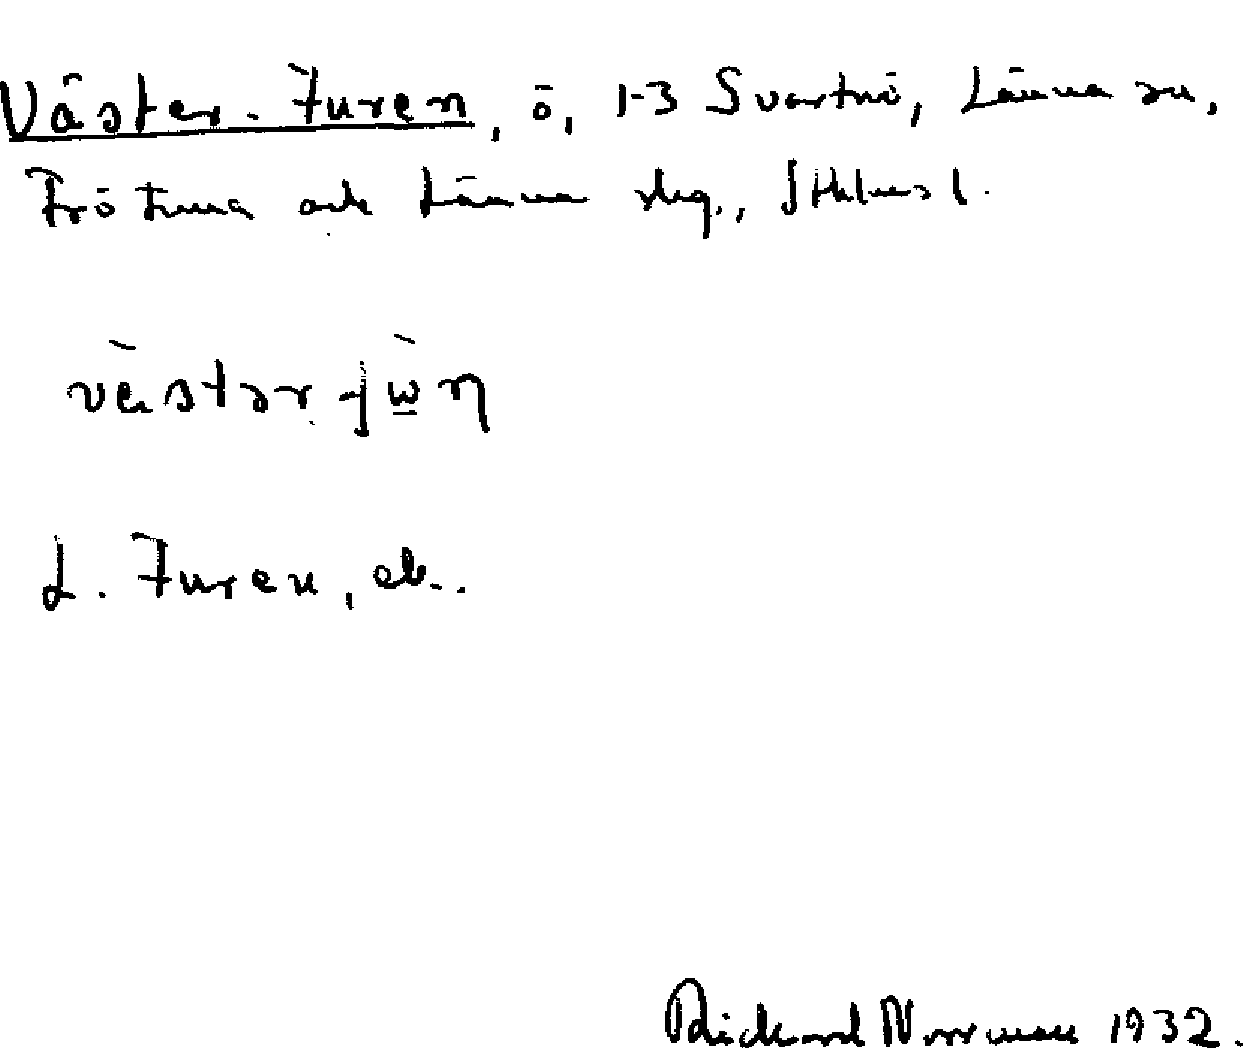 Väster-Furen, ö, 1-3 Svartnö, Länna sn,
Frötuna och Länna slg., Sthlms l.
vä̀stər fu̠̇̀ŋ
L. Furen, ek.
Rickard Norrman 1932.